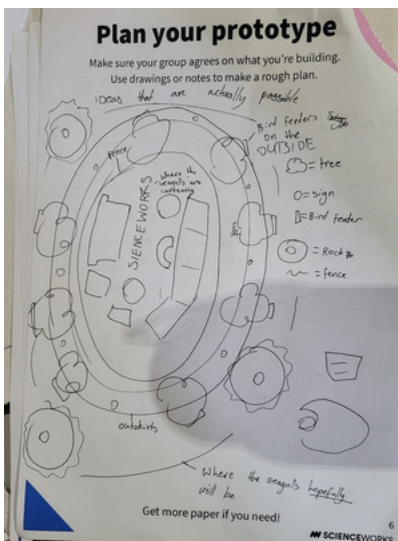 Plan your prototype
Make sure your group agrees on what you're building.
Use drawings or notes to make a rough plan.
ideas that are actually possible
Bird feeders
on the
OUTSIDE
fence
where the
seagulls are
currently
SIENCEWORKS
= tree
= sign
= Bird feeder
= Rock
= fence
outskirts
Where the seagulls hopefully
will be
Get more paper if you need!
6
SCIENCEWORKS